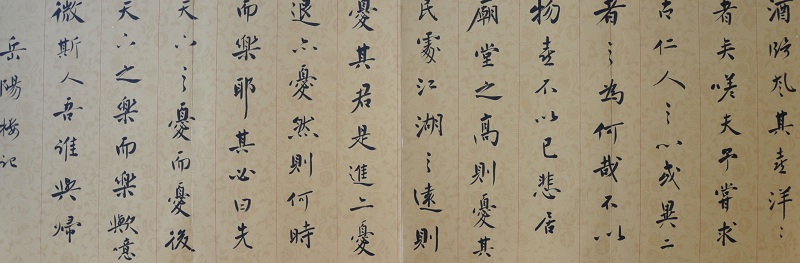 酒临风其喜洋〻
者矣嗟夫予嘗求
古仁人之心或異二
者之為何哉不以
物喜不以己悲居
廟堂之高則憂其
民處江湖之遠則
憂其君是進亦憂
退亦憂然則何時
而樂耶其必曰先
天下之憂而憂後
天下之樂而樂歟噫
微斯人吾誰與歸
岳陽樓記